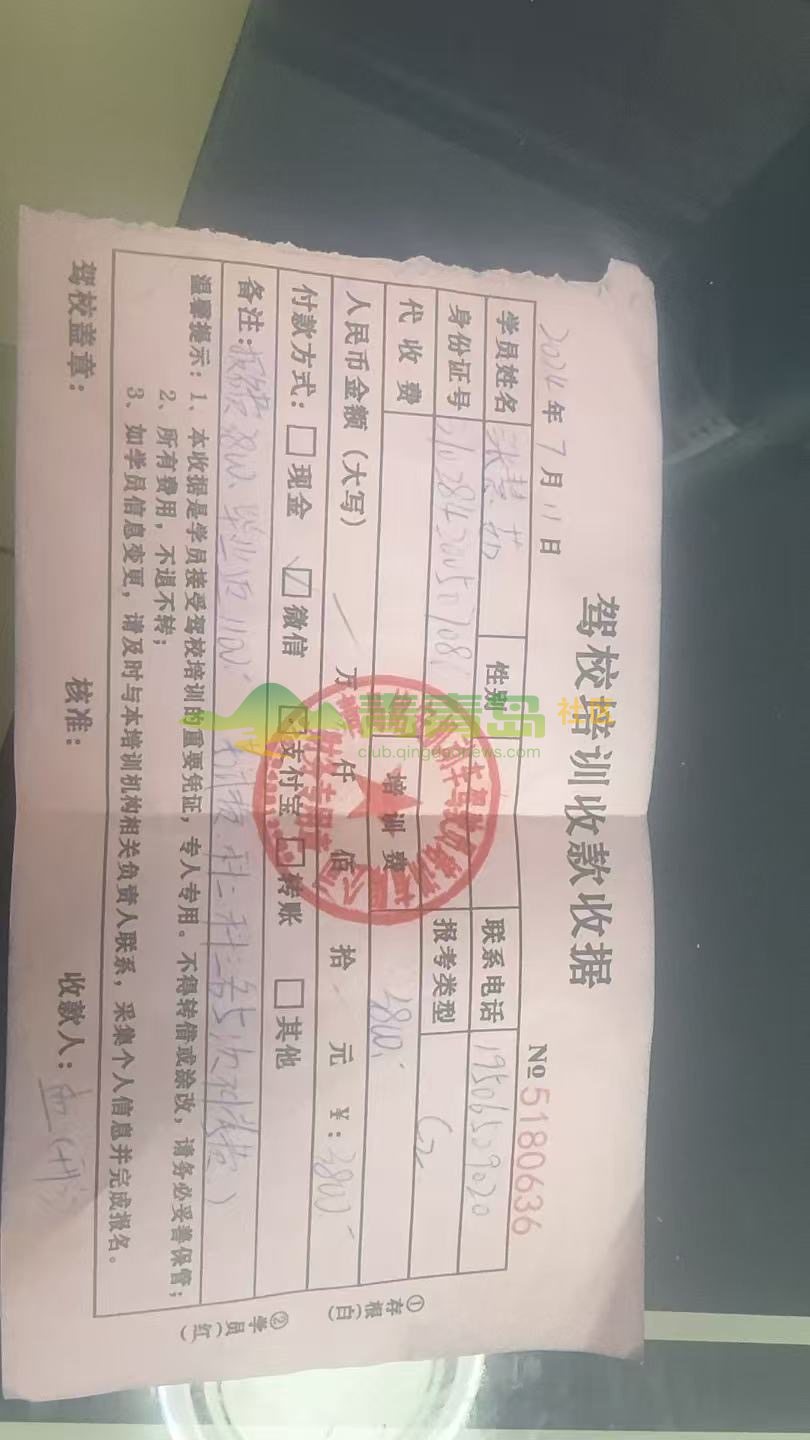 驾校培训收款收据
2024年7月11日
№5180636
学员姓名
性别
联系电话 19506509020
身份证号
报考类型 C2
代收费
培训费 3800.
人民币金额(大写) 万 仟 佰 拾 元 ¥:3800.
付款方式:□现金 ☑微信 □支付宝 □转账 □其他
备注:
温馨提示:1、本收据是学员接受驾校培训的重要凭证,专人专用。不得转借或涂改,请务必妥善保管;
2、所有费用,不退不转;
3、如学员信息变更,请及时与本培训机构相关负责人联系,采集个人信息并完成报名。
驾校盖章: 核准: 收款人:
①存根(白)
②学员(红)
青青岛社区
club.qingdaonews.com